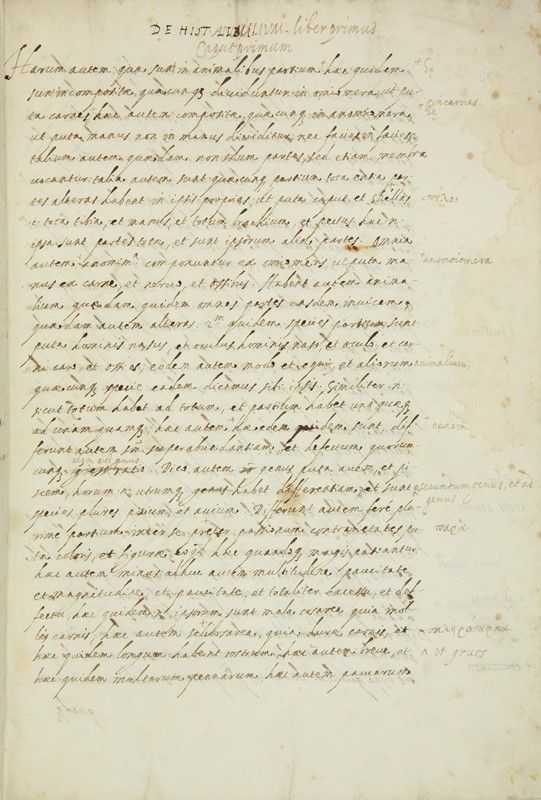 DE HIST ANIMALIUM. liber primus
Caput primum
Harum autem quae sunt in animalibus partium hae quidem
sunt incomposita, quaecunq dividuntur in omiomera, ut pu
ta carnes, hae autem composita quaecunq in anomiomera,
ut puta manus non in manus dividitur nec facies in facies
talium autem quaedam non solum partes, sed etiam membra
vocantur talia autem sunt quaecunq partium tota entia par
tes alteras habent in istis proprias, ut puta caput et
tota tibia, et manus, et totum brachium, et pectus hae n
ipsa sunt partes totae, et sunt ipsorum aliae partes. Omnia
autem componuntur ex omiomeris ut puta ma
nus ex carne, et nervis, et ossibus. Habent autem anima
lium quaedam quidem omnes partes easdem invicem,
quaedam autem alteras. quidem species partium sunt
puta hominis nasus et oculus hominis naso et oculo et car
ni caro, et os, eodem autem modo et equi, et aliorum animalium,
quaecunq specie eadem dicimus sibi ipsis. Similiter n
sicut totum habet ad totum, et partium habet una quaeq
ad unam quamq, hae autem eaedem quidem sunt, dif
ferunt autem superabundantiam, et defectum quorum
cunq
idem est genus
Dico autem genus puta avem, et pi
scem, horum n utrumq genus habet differentiam et sunt
species plures piscium et avium. Differunt autem fere plu
rime partium inter se preter passionum contrarietates pu
ta coloris, et figurae, eo quod hae quandoq magis patiantur
hae autem minus adhuc autem multitudine paucitate,
et magnitudine, et parvitate, et totaliter excessu, et def
fectu, hae quidem n ipsorum sunt quia mol
lis carnis, hae autem quia dure carnis, et
hae quidem longum habent rostrum, hae autem breve, et
hae quidem multarum pennarum hae autem paucarum
in carnes
σκέλος
anomoiomera
eadem
secundum genus, et ad
genus
παρὰ
ut grues